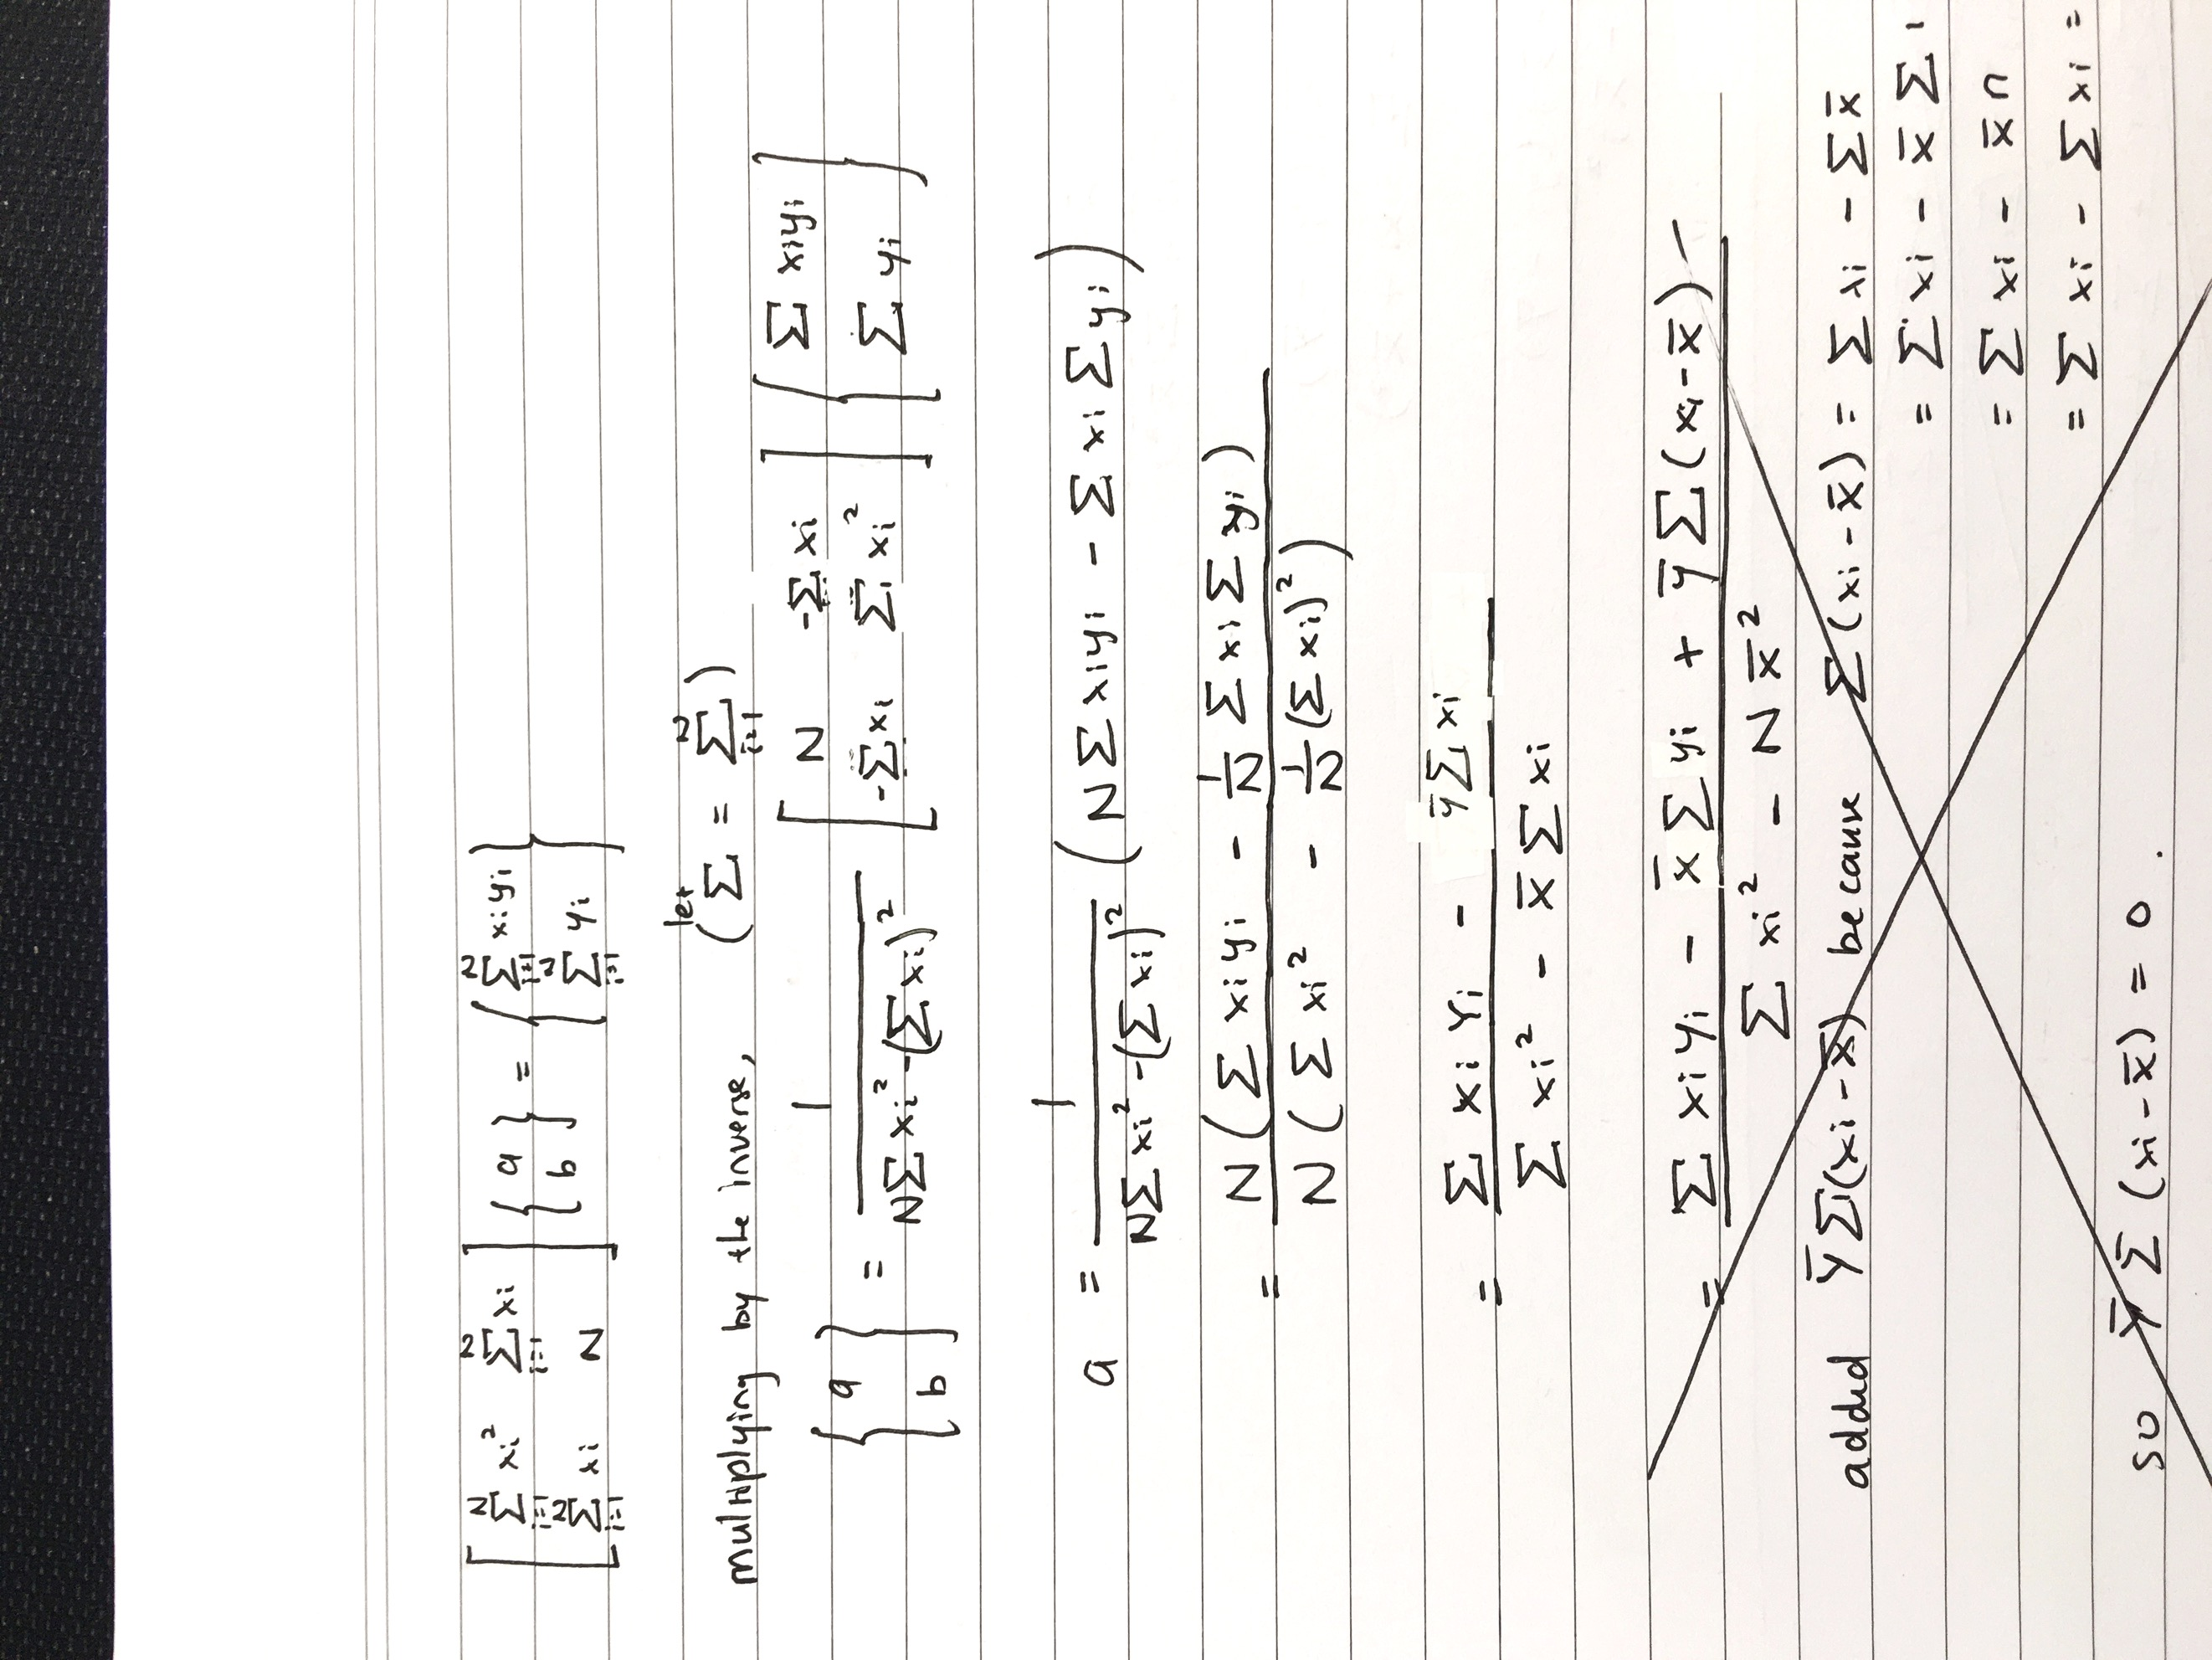 [ Σ_{i=1}^{N} xi² Σ_{i=1}^{N} xi ; Σ_{i=1}^{N} xi N ] { a ; b } = { Σ_{i=1}^{N} xiyi ; Σ_{i=1}^{N} yi }
multiplying by the inverse, (let Σ = Σ_{i=1}^{N})
{ a ; b } = 1 / (NΣxi² - (Σxi)²) [ N -Σxi ; -Σxi Σxi² ] { Σ xiyi ; Σ yi }
a = 1 / (NΣxi² - (Σxi)²) (NΣxiyi - Σxi Σyi)
= N(Σ xiyi - 1/N Σ xi Σ yi) / N(Σ xi² - 1/N (Σ xi)²)
= (Σ xi Yi - ȳΣxi) / (Σ xi² - x̄ Σ xi)
= (Σ xiyi - x̄ Σ yi + ȳ Σ(xi-x̄) -) / (Σ xi² - N x̄²)
added ȳΣ(xi-x̄) because Σ(xi-x̄) = Σ xi - Σ x̄
= Σ xi - x̄ Σ 1
= Σ xi - x̄ n
= Σ xi - Σ xi =
so ȳ Σ (xi-x̄) = 0.